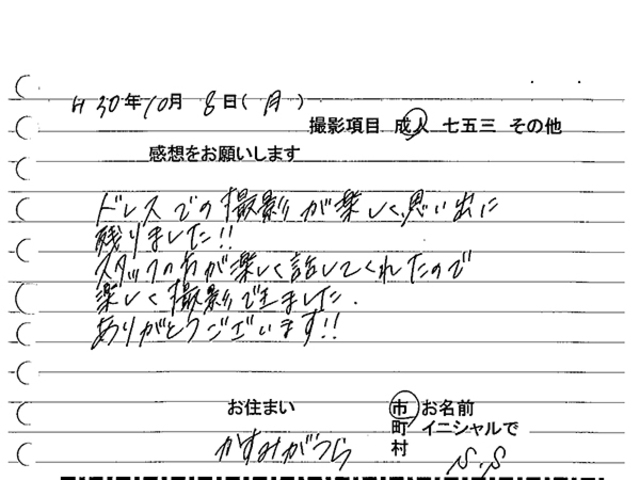 H30年10月8日(月)
撮影項目 成人 七五三 その他
感想をお願いします
ドレスでの撮影が楽しく思い出に
残りました!!
スタッフの方が楽しく話してくれたので
楽しく撮影できました.
ありがとうございます!!
お住まい 市 お名前
町 イニシャルで
村
かすみがうら S.S